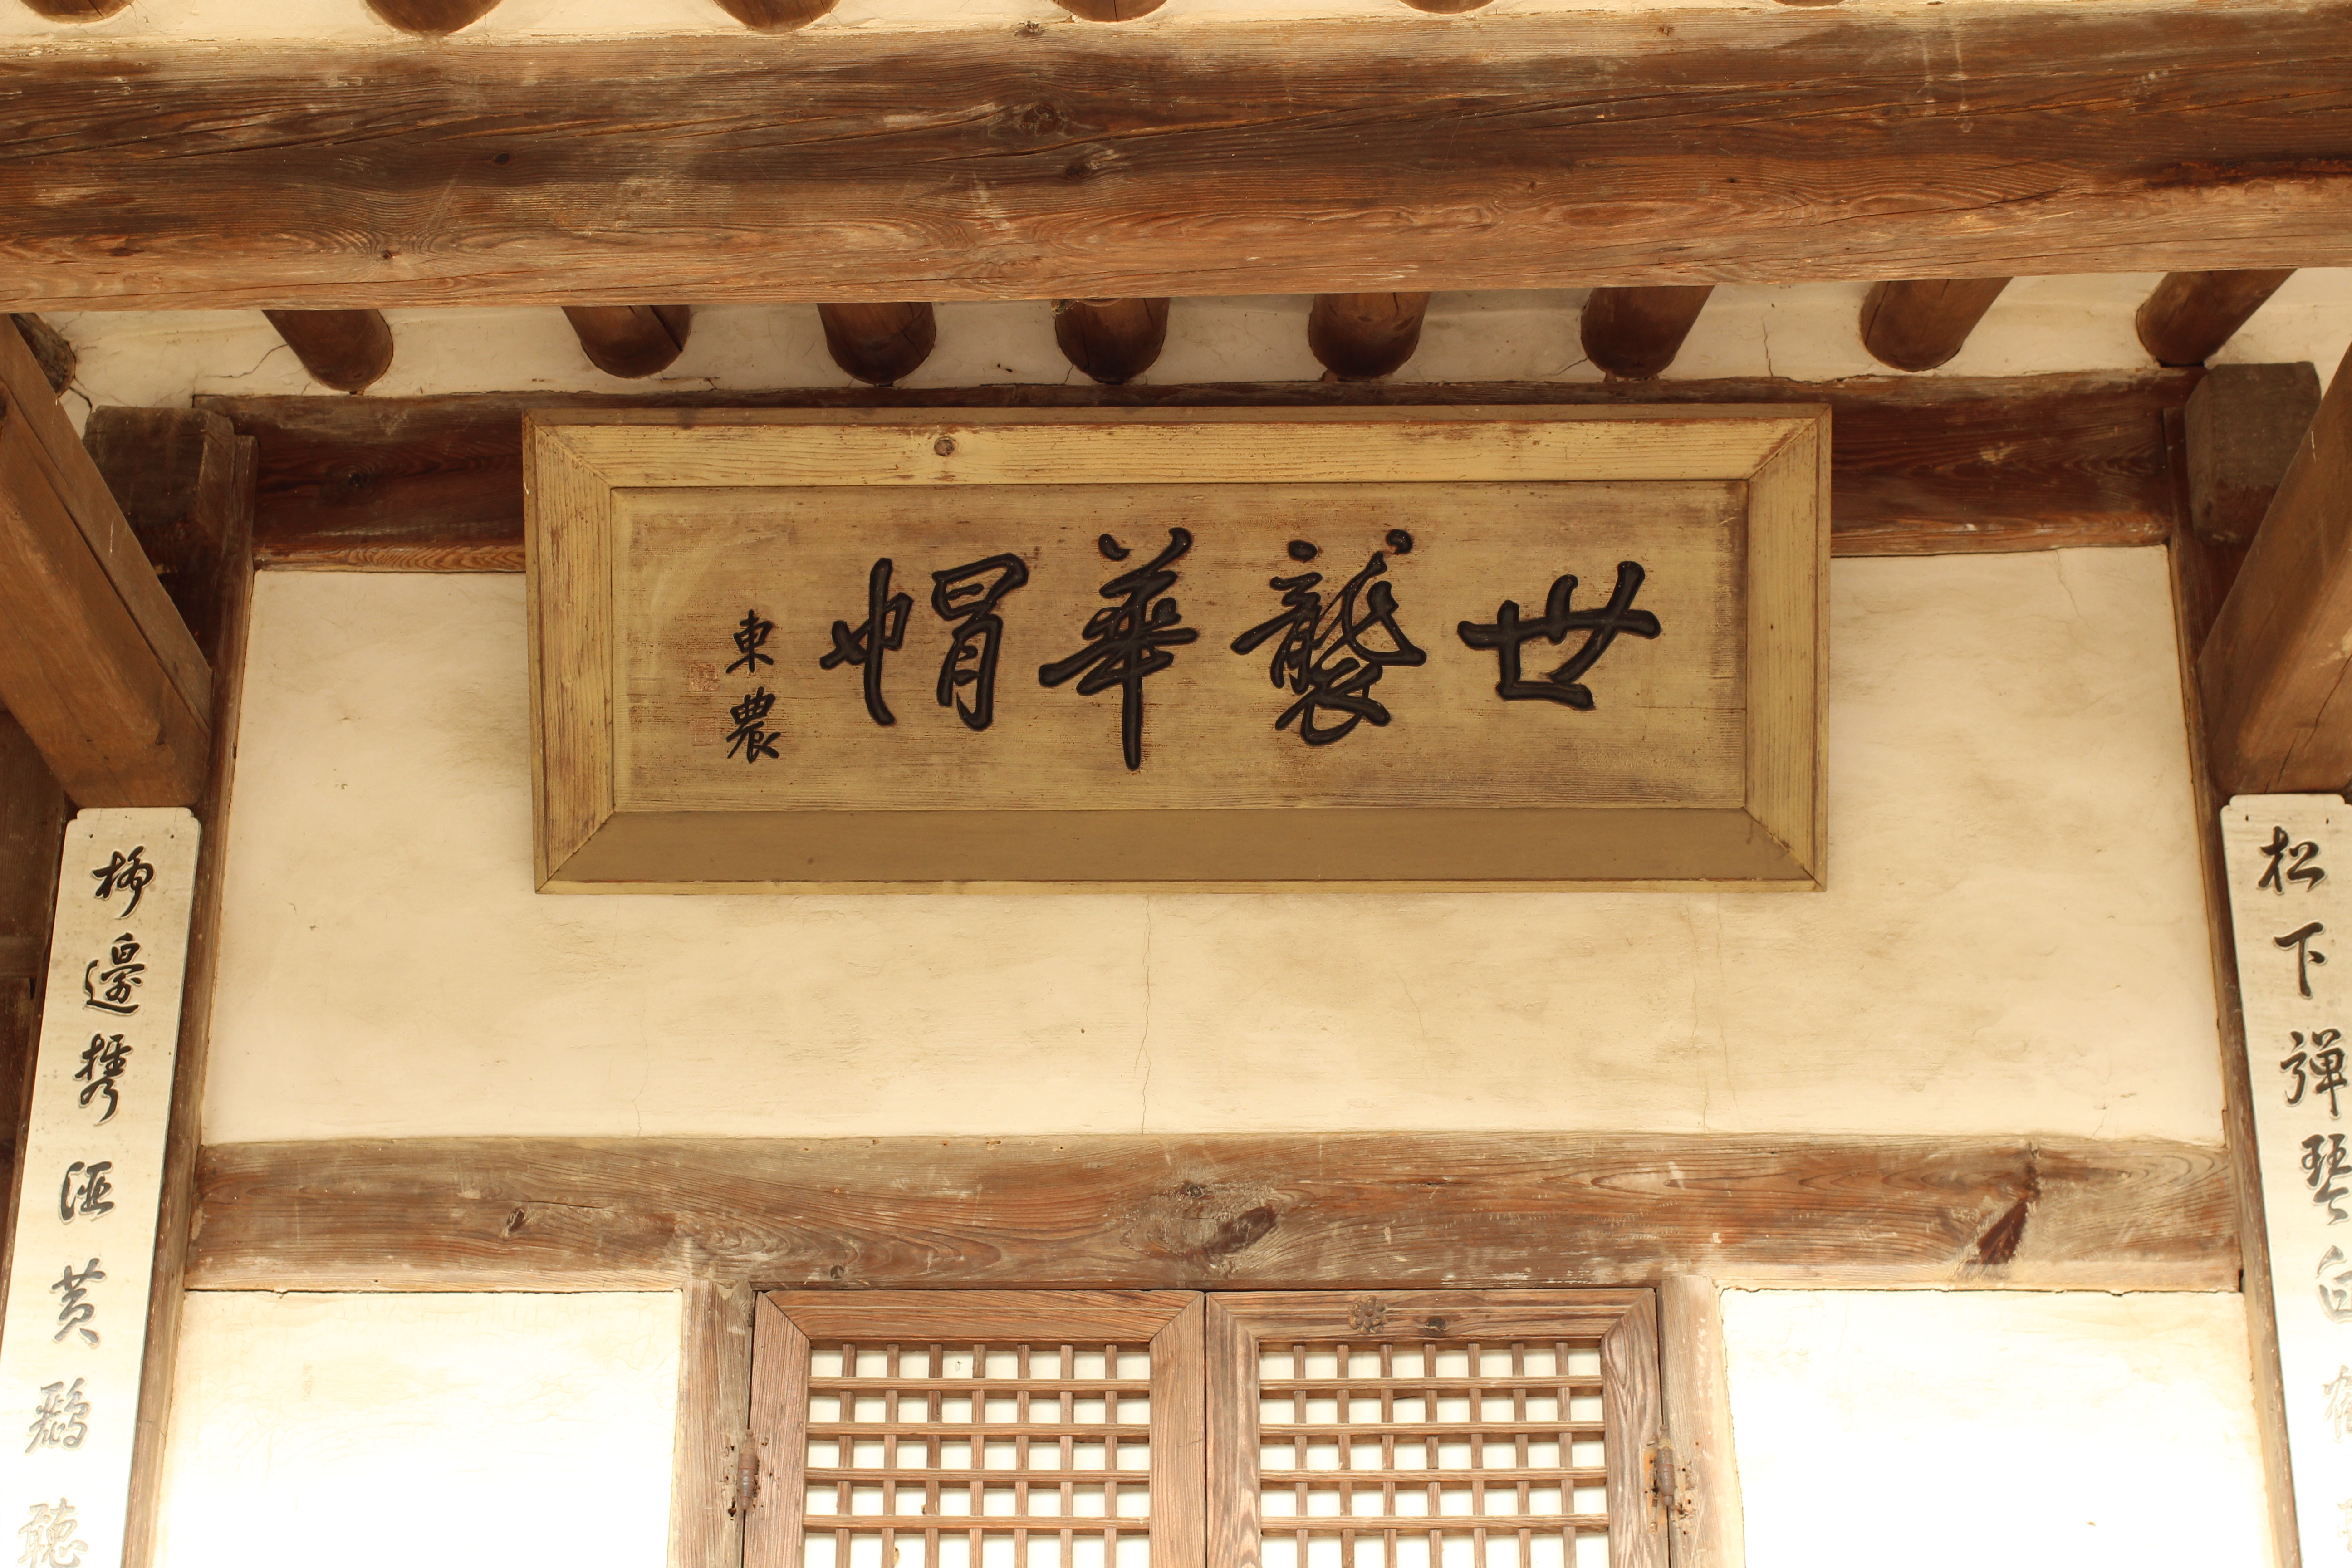 世襲華帽
東農
松下彈琴白鶴
柳邊携酒黃鸝聽